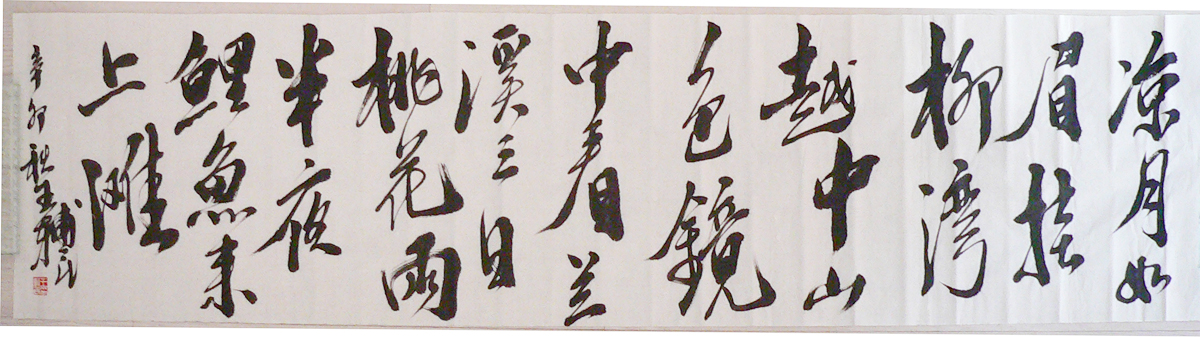 凉月如
眉挂
柳湾
越中山
色镜
中看兰
溪三日
桃花雨
半夜
鲤鱼来
上滩
辛卯秋王